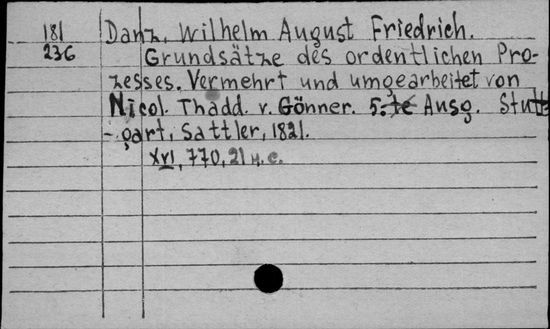 181 Danz, Wilhelm August Friedrich.
236 Grundsätze des ordentlichen Pro-
zesses. Vermehrt und umgearbeitet von
Nicol. Thadd. v. Gönner. 5.te Ausg. Stutt
-gart, Sattler, 1821.
XVI, 770, 21 н. с.